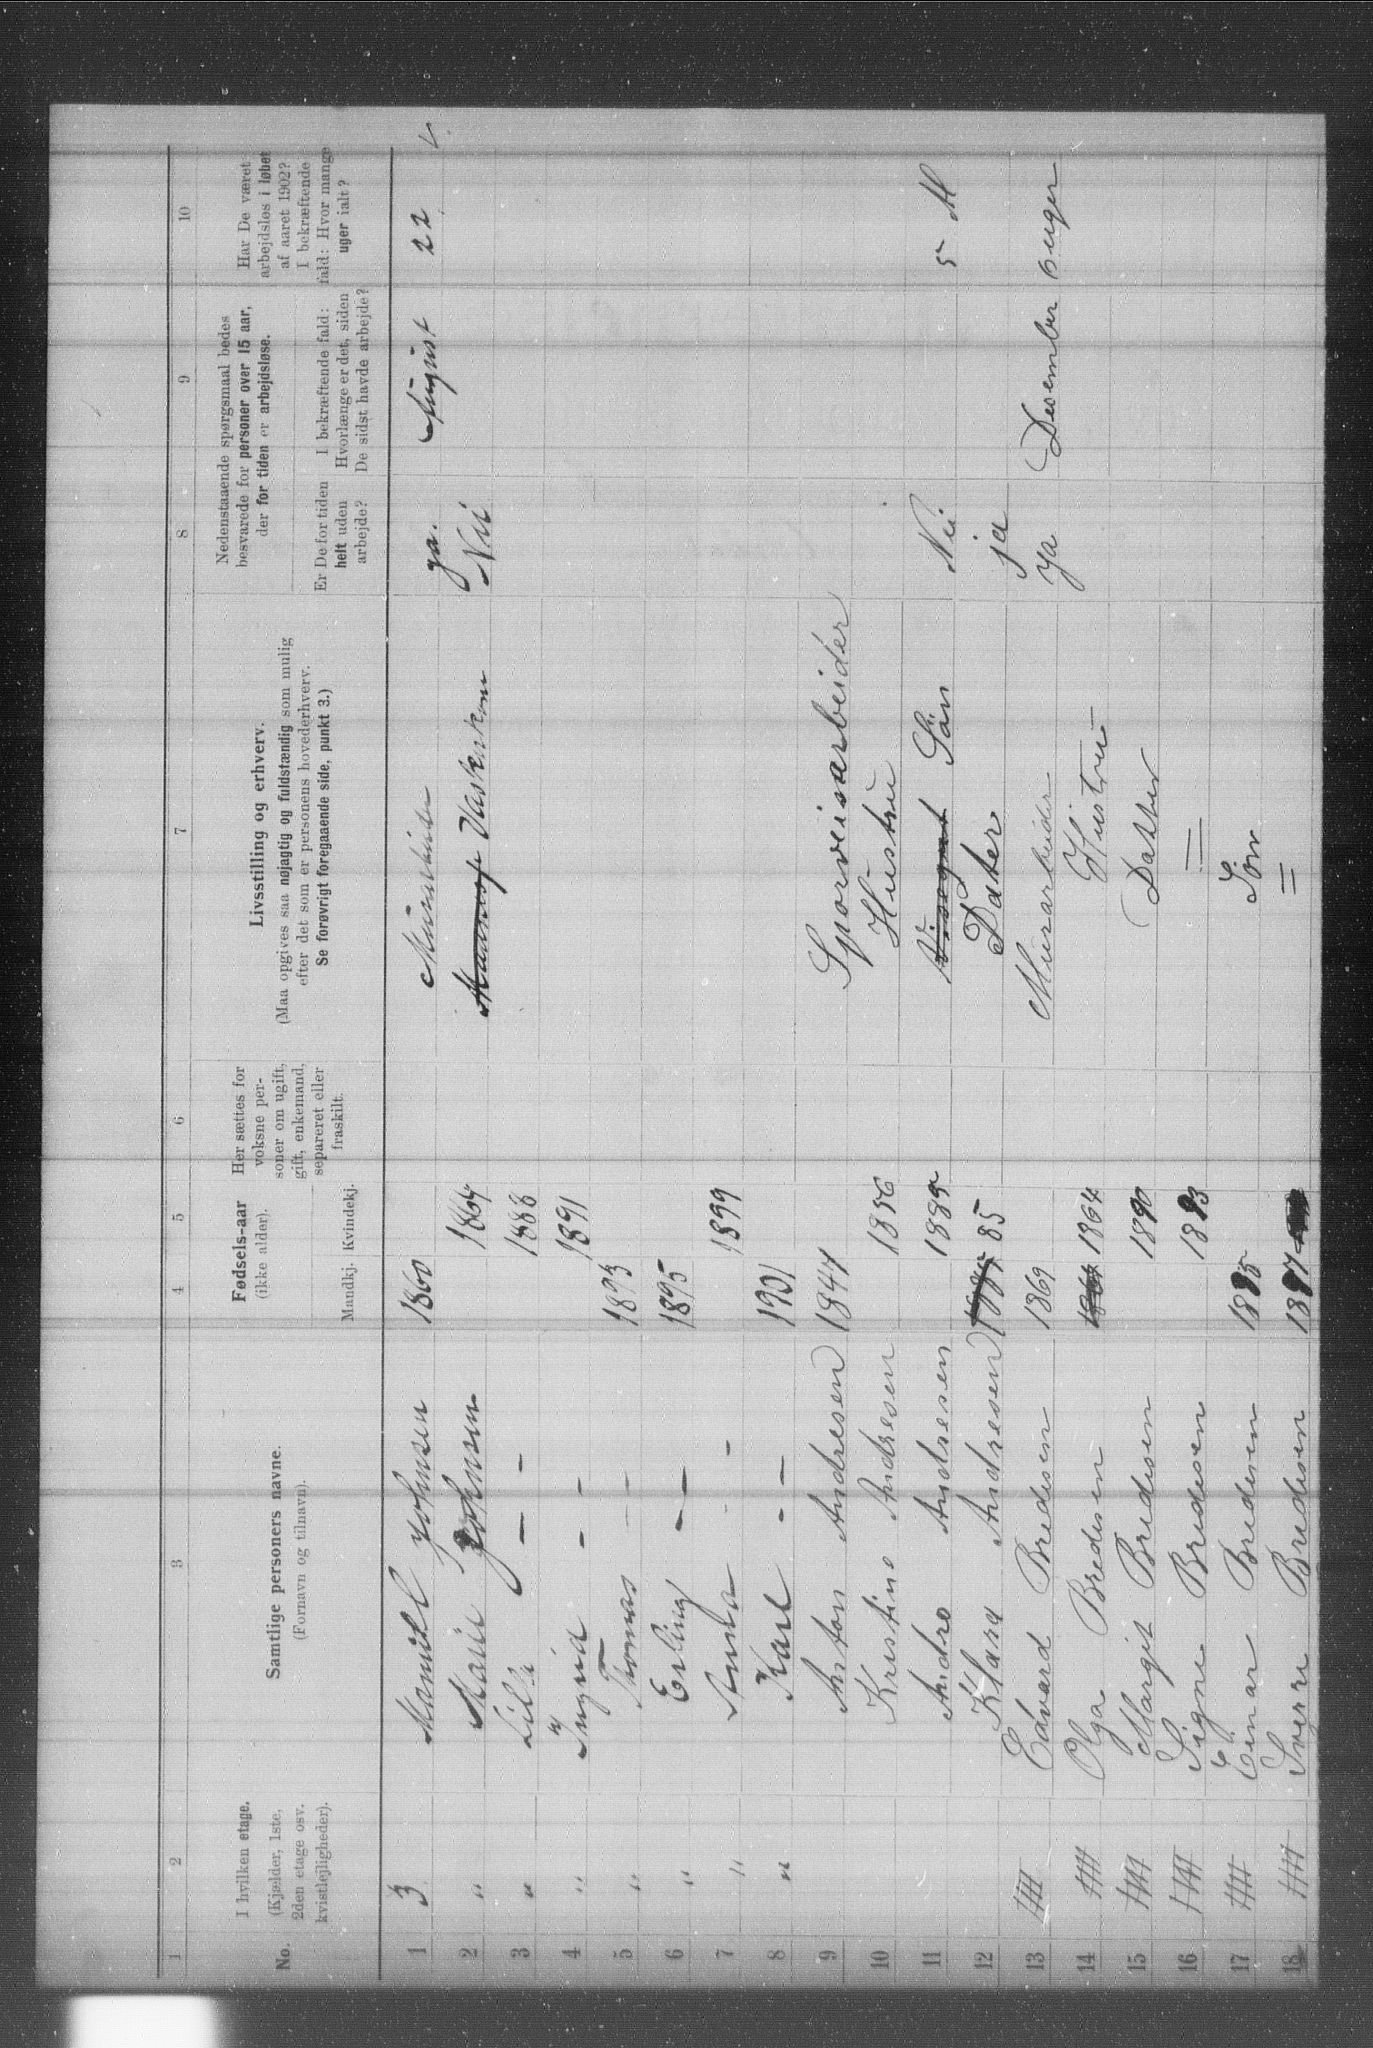 1 2 3 4 5 6 7 8 9 10
No.
I hvilken etage.
(Kjælder, 1ste,
2den etage osv.
kvistlejligheder).
Samtlige personers navne.
(Fornavn og tilnavn).
Fødsels-aar
(ikke alder).
Mandkj. Kvindekj.
Her sættes for
voksne per-
soner om ugift,
gift, enkemand,
separeret eller
fraskilt.
Livsstilling og erhverv.
(Maa opgives saa nøjagtig og fuldstændig som mulig
efter det som er personens hovederhverv.
Se forøvrigt foregaaende side, punkt 3.)
Nedenstaaende spørgsmaal bedes
besvarede for personer over 15 aar,
der for tiden er arbejdsløse.
Er De for tiden
helt uden
arbejde?
I bekræftende fald:
Hvorlænge er det, siden
De sidst havde arbejde?
Har De været
arbejdsløs i løbet
af aaret 1902?
I bekræftende
fald: Hvor mange
uger ialt?
1 3 Johnsen 1860 ya. August 22
2 " Marie Johnsen 1864 Nei
3 " — - 1888
4 " Ingrid - - 1891
5 " Thomas — — 1893
6 " Erling — — 1895
7 " Anna - - 1899
8 " Karl - — 1901
9 Anton Andresen 1844 Sporveisarbeider
10 Kristine Andresen 1856 Hustru
11 Andro Andresen 1885 Sön Nei 5 M
12 Klara Andresen 85 Dater ja
13 Edvard Bredesen 1869 Murarbeider ya Desember 6 uger
14 Olga Bredesen 1864 Hustru —
15 Margit Bredesen 1890 Datter
16 Signe Bredesen 1893 =
17 Einar Bredesen 1895 Sön
18 Sverre Bredesen 1897 =